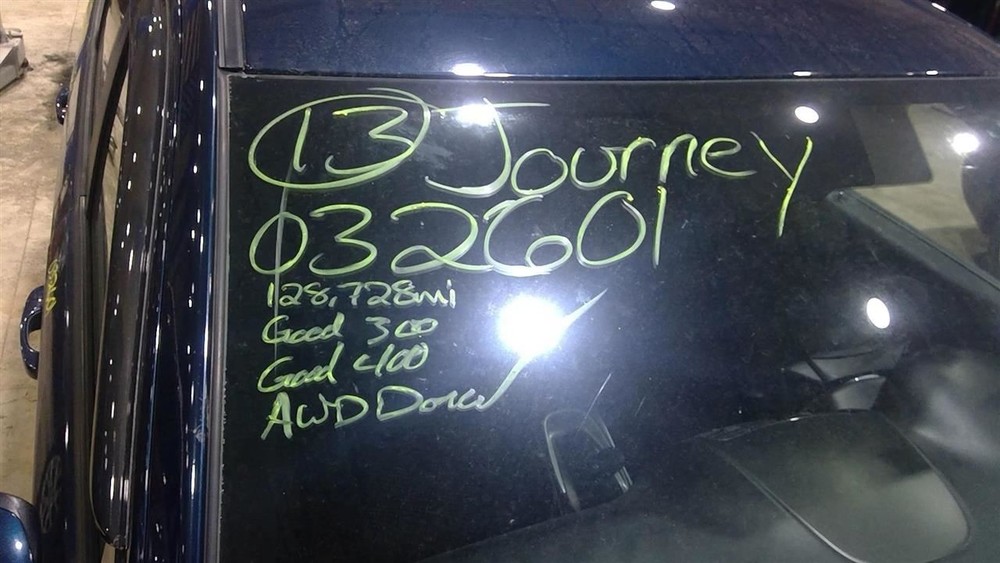 13 Journey
032601
128,728mi
Good 300
Good 400
AWD